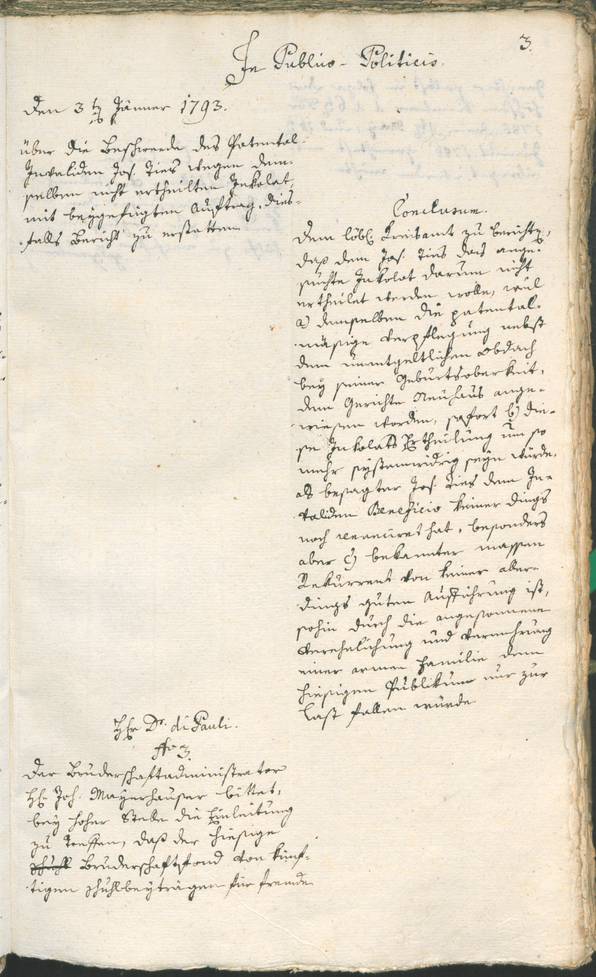 3.
In Publico-Politicis.
Den 3 t Jänner 1793.
über die Beschwerde des Patental-
Invaliden Jos. Ties wegen dem-
selben nicht ertheilten Inkolat,
mit beygefügten Auftrag, dies-
falls Bericht zu erstatten.
Conclusum.
Dem löbl. Kreisamt zu berichten,
daß dem Jos. Ties das ange-
suchte Inkolat darum nicht
ertheilet werden wolle, weil
a) demselben die patental-
mäßige Verpflegung nebst
dem unentgeltlichen Obdach
bey seiner Geburtsoberkeit,
dem Gerichte Neuhaus ange-
wiesen worden, sofort b) die-
se Inkolats Ertheilung um so
mehr systemwidrig seyn würde,
als besagter Jos. Ties dem In-
validen Beneficio keiner dings
noch renuncirt hat, besonders
aber c) bekannter massen
Rekurrent von keiner aller-
dings guten Aufführung ist,
sohin durch die angesonnene
Verehelichung und Vermehrung
einer armen Familie dem
hiesigen Publikum nur zur
last fallen würde
Hr Dr. di Pauli.
No 3.
Der Bruderschaftadministrator
Hr Joh. Mayrhauser bittet,
bey hoher Stelle die Einleitung
zu treffen, daß der hiesige
Schuhl Bruderschaftsfond von künf-
tigen Schuhlbeyträgen für fremde